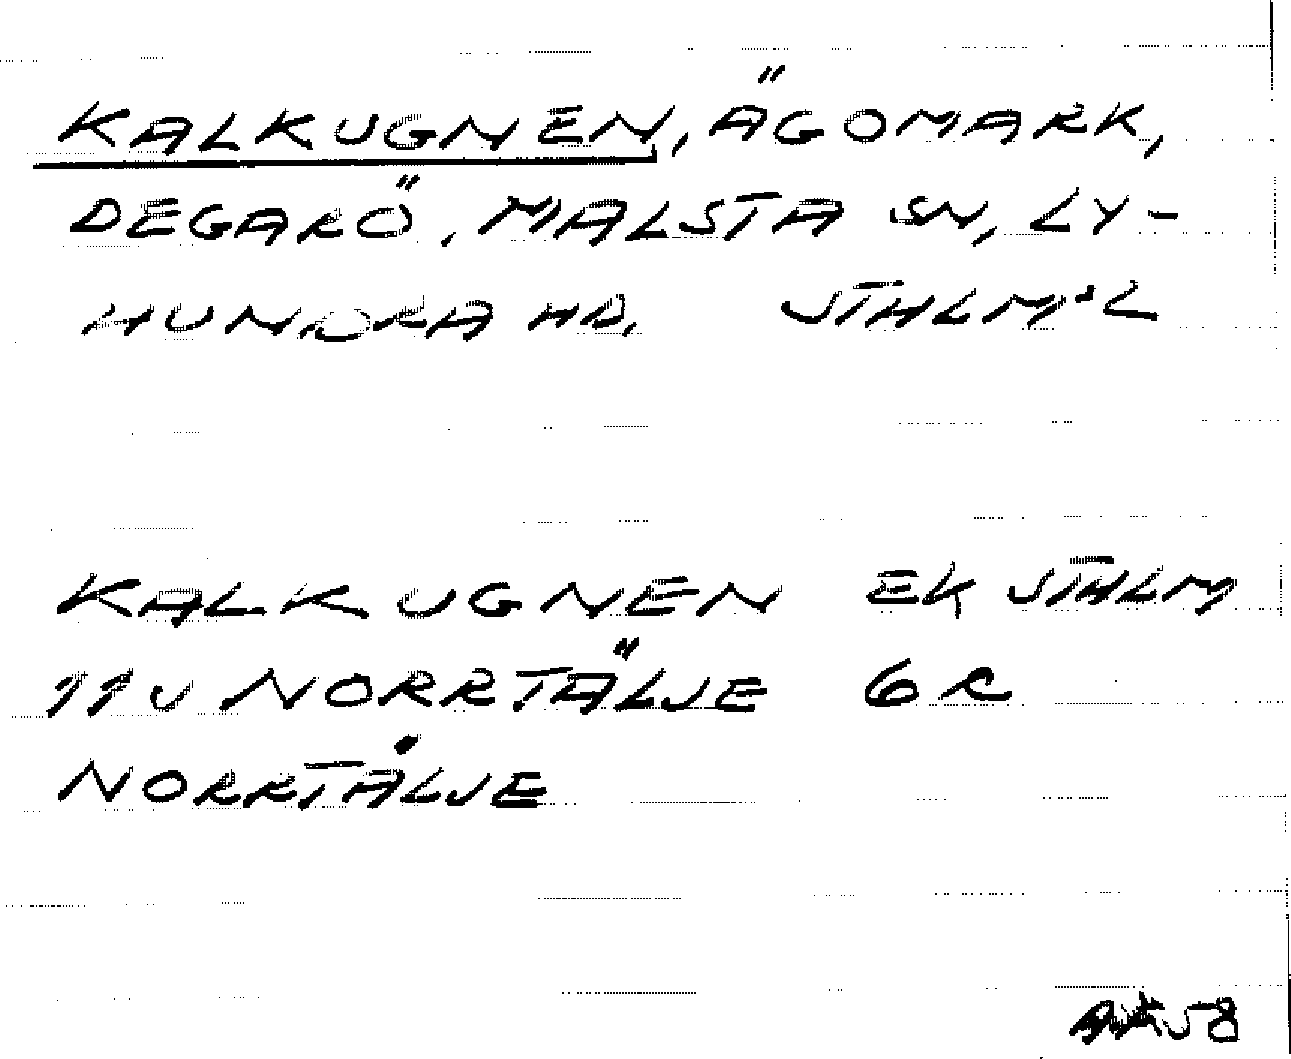 KALKUGNEN, ÄGOMARK,
DEGARÖ, MALSTA SN, LY-
HUNDRA HD. STHLM:L
KALKUGNEN EK STHLM
11V NORRTÄLJE 6C
NORRTÄLJE
58